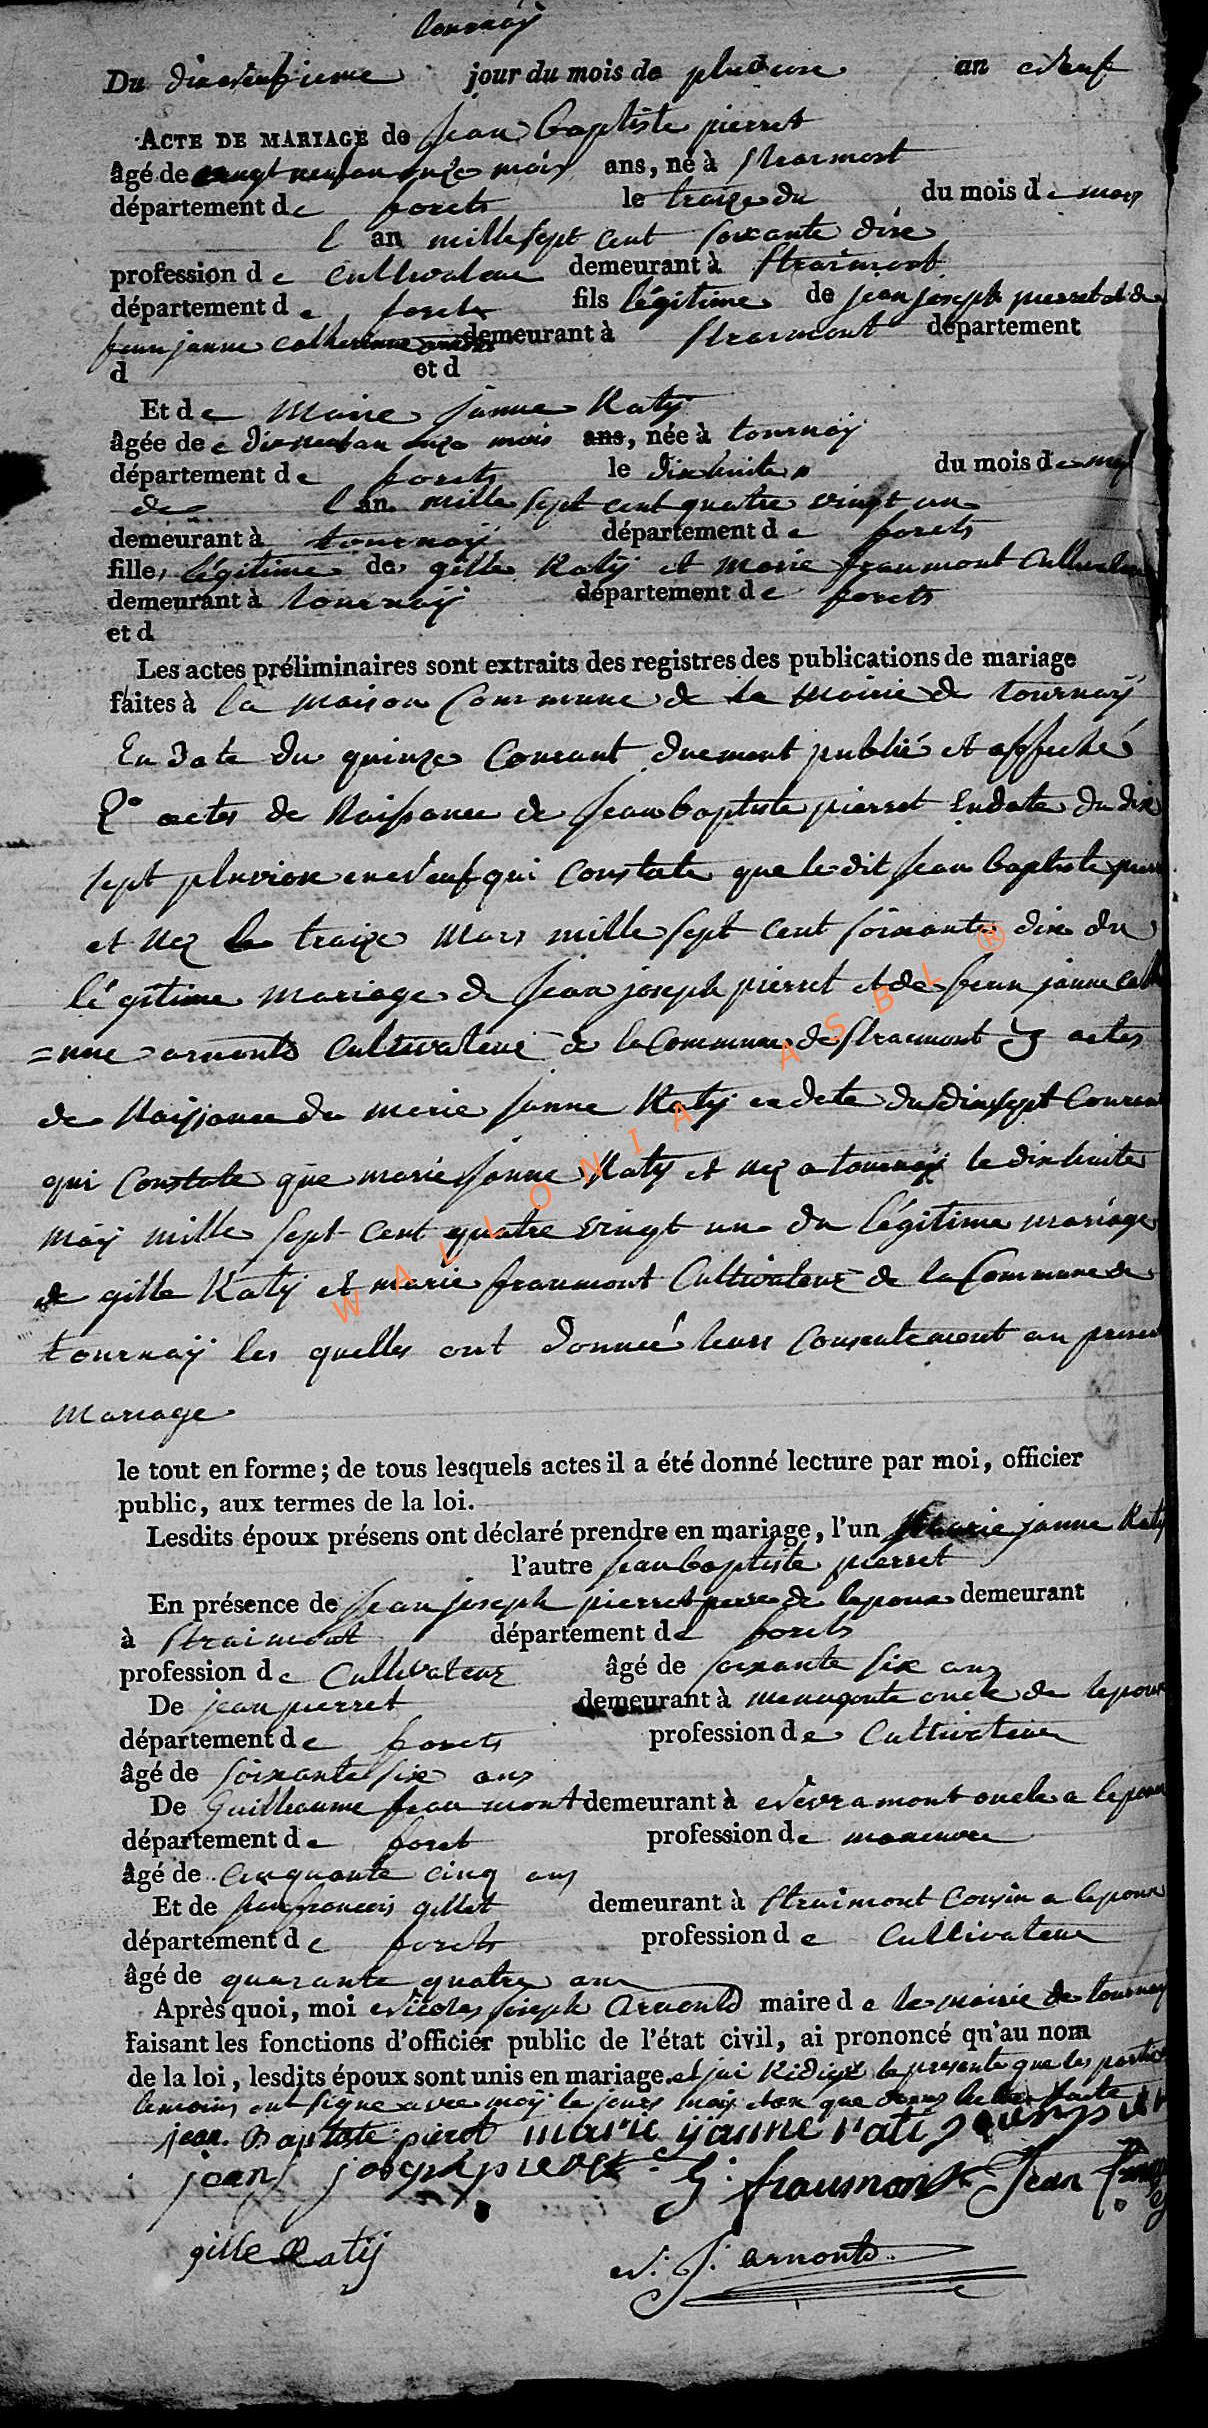 tournaÿ
Du dixneufieme jour du mois de pluviose an neuf
ACTE DE MARIAGE de jean baptiste pierret
âgé de vingt neuf an onze mois ans, né à straimont
département de forets le traize du du mois de mars
l an mille sept cent soixante dixe
profession de cultivateur demeurant à straimont
département de forets fils légitime de jean joseph pierret et de
feu janne catherinne demeurant à straimont département
d et d
Et de Marie janne Katÿ
âgée de dixneuf an onze mois ans, née à tournaÿ
département de forets le dixhuite du mois de maÿ
de l an mille sept cent quatre vingt un
demeurant à tournaÿ département de forets
fille légitime de gille Katÿ et marie fraumont Cultivateur
demeurant à tournaÿ département de forets
et d
Les actes préliminaires sont extraits des registres des publications de mariage
faites à la maison Commune de la Mairie de tournaÿ
En date du quinze Courant duement publié et affiché
2° actes de Naissance de jean baptiste pierret en date du dix
sept pluviose neuf qui Constate que le dit jean baptiste
et nez le traize Mars mille sept cent soixante dixe du
légitime mariage de jean joseph pierret et de feu janne cath
=nne arnould cultivateur de la Commune de straimont 3 actes
de Naissance de marie janne Katÿ en date du dixsept Courent
qui Constate que marie janne Katÿ et nez a tournaÿ le dixhuite
maÿ mille sept cent quatre vingt un du légitime mariage
de gille Katÿ et marie fraumont Cultivateur de la Commune de
tournaÿ les quelles ont donneé leurs Consentement au present
mariage
le tout en forme; de tous lesquels actes il a été donné lecture par moi, officier
public, aux termes de la loi.
Lesdits époux présens ont déclaré prendre en mariage, l'un marie janne Katÿ
l'autre jean baptiste pierret
En présence de jean joseph pierret pere de lepoux demeurant
à straimont département de forets
profession de Cultivateur âgé de soixante six ans
De jean pierret demeurant à menugoute oncle de lepoux
département de forets profession de Cultivateur
âgé de soixante six ans
De Guilleaume fraumont demeurant à nevramont oncle a lepoux
département de foret profession de maneuvre
âgé de cinquante cinq ans
Et de jean francois gillet demeurant à straimont Cousin a lepoux
département de forets profession de Cultivateur
âgé de quarante quatre ans
Après quoi, moi Nicolas joseph Arnould maire de la mairie de tournaÿ
faisant les fonctions d'officier public de l'état civil, ai prononcé qu'au nom
de la loi, lesdits époux sont unis en mariage. et jai Rédigé le presente que les parties
temoins ont signe avec moÿ le jours mois et an que dessus lecture faite
jean Baptiste pieret marie ÿanne rati
jean joseph pieret G: fraumont Jean
gille Ratÿ N: J: arnould
WALLONIA ASBL ®